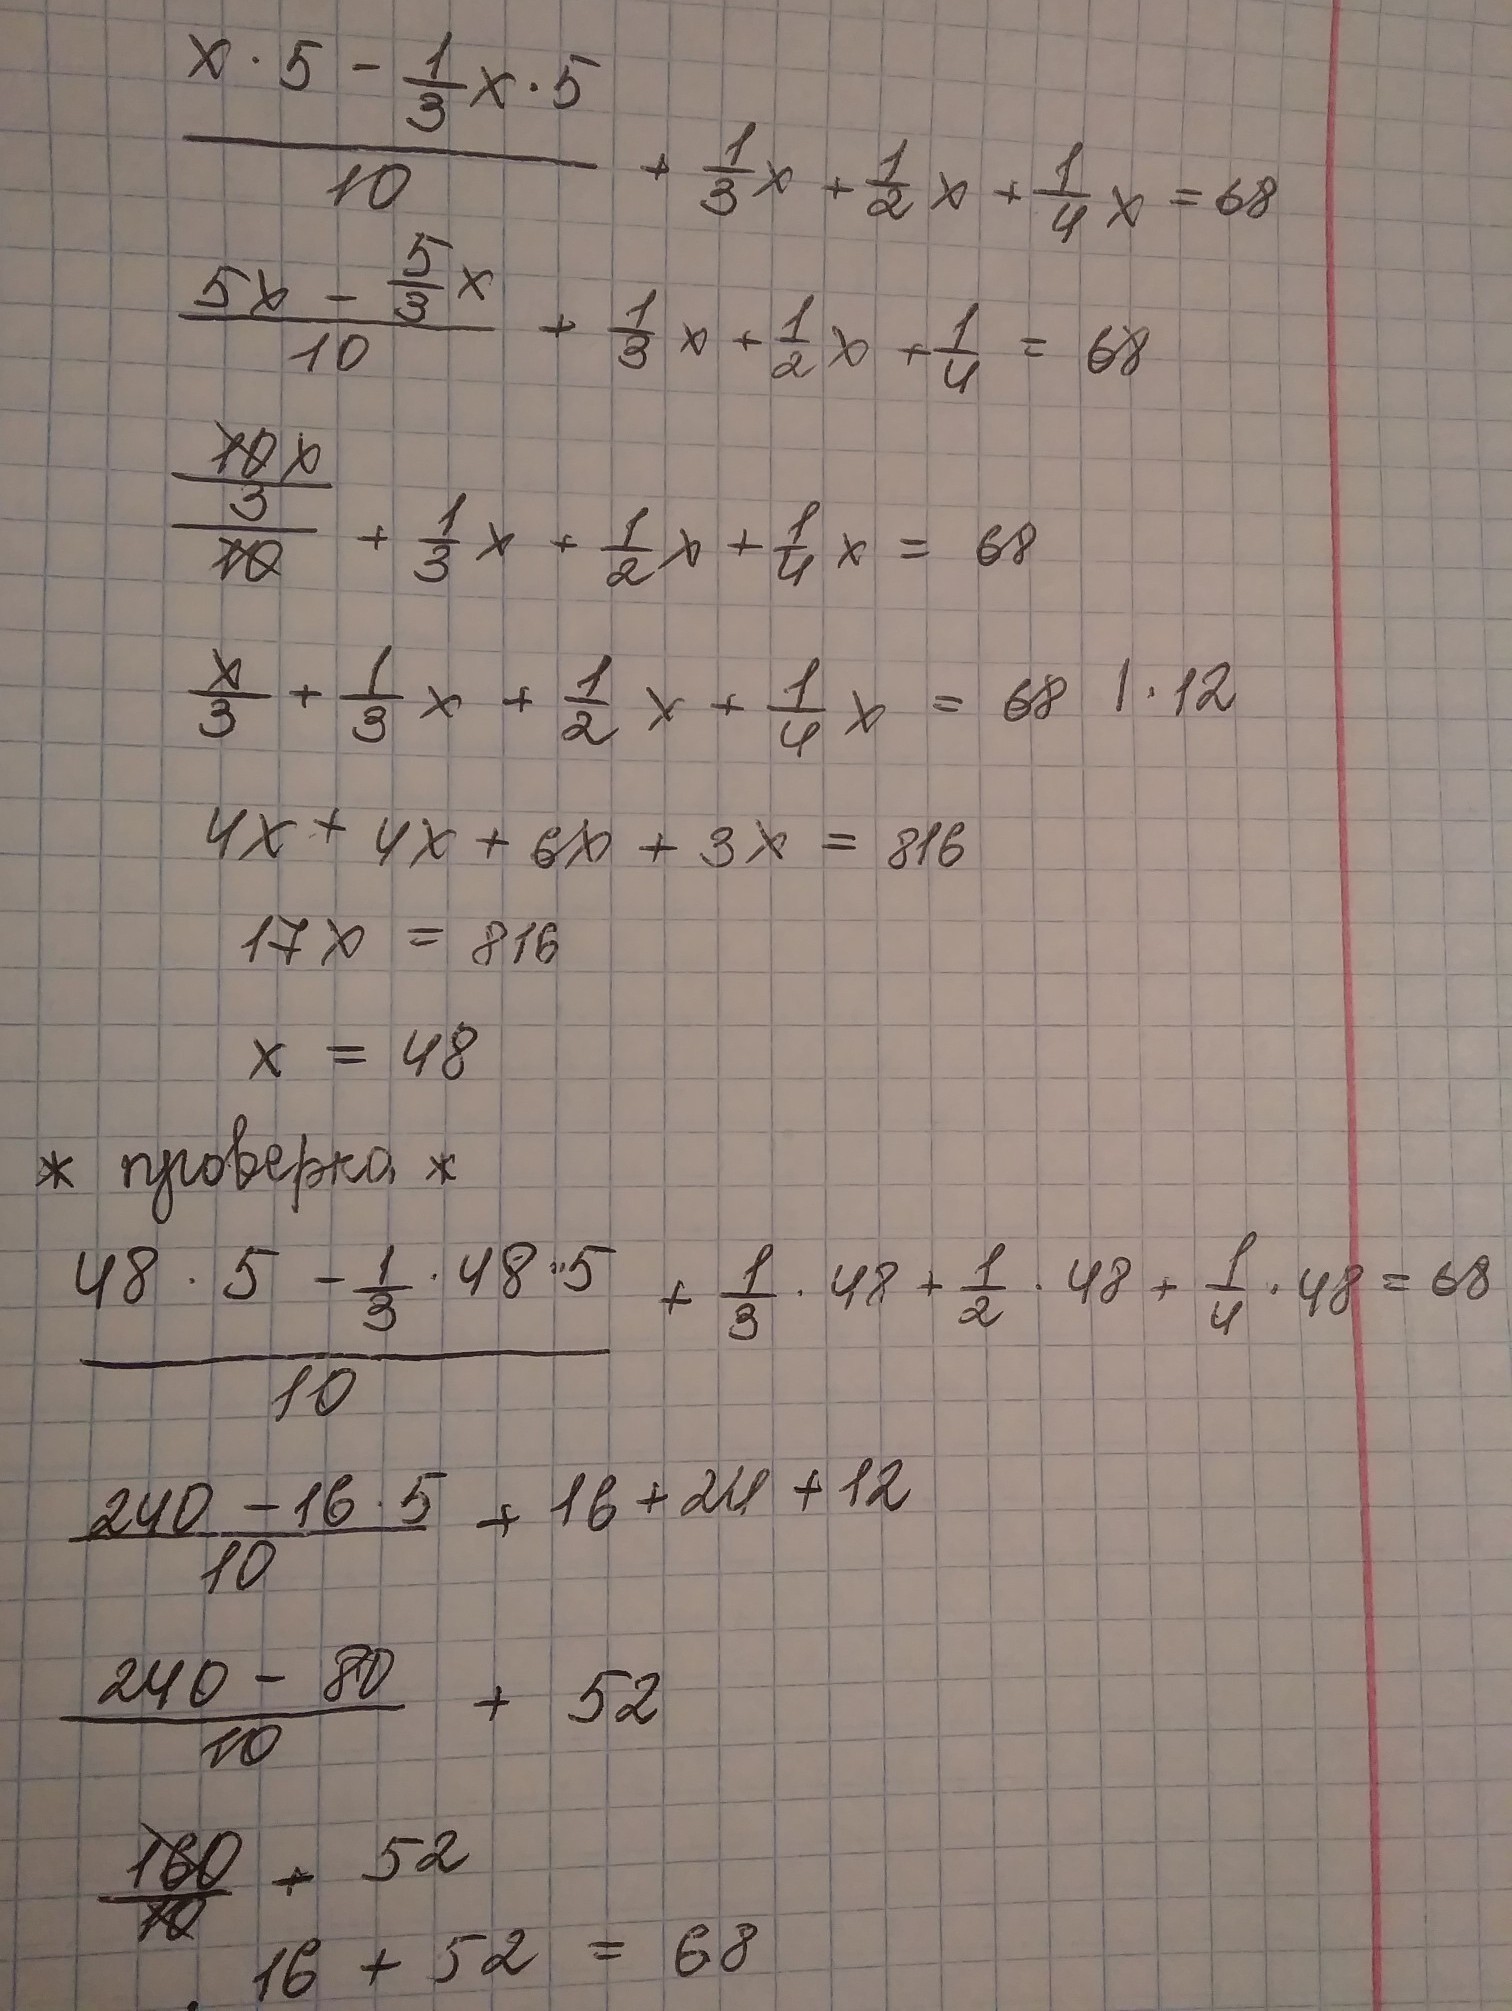 (x · 5 - 1/3 x · 5)/10 + 1/3 x + 1/2 x + 1/4 x = 68
(5x - 5/3 x)/10 + 1/3 x + 1/2 x + 1/4 = 68
(10x/3)/10 + 1/3 x + 1/2 x + 1/4 x = 68
x/3 + 1/3 x + 1/2 x + 1/4 x = 68 | · 12
4x + 4x + 6x + 3x = 816
17x = 816
x = 48
* проверка *
(48 · 5 - 1/3 · 48 · 5)/10 + 1/3 · 48 + 1/2 · 48 + 1/4 · 48 = 68
(240 - 16 · 5)/10 + 16 + 24 + 12
(240 - 80)/10 + 52
160/10 + 52
16 + 52 = 68